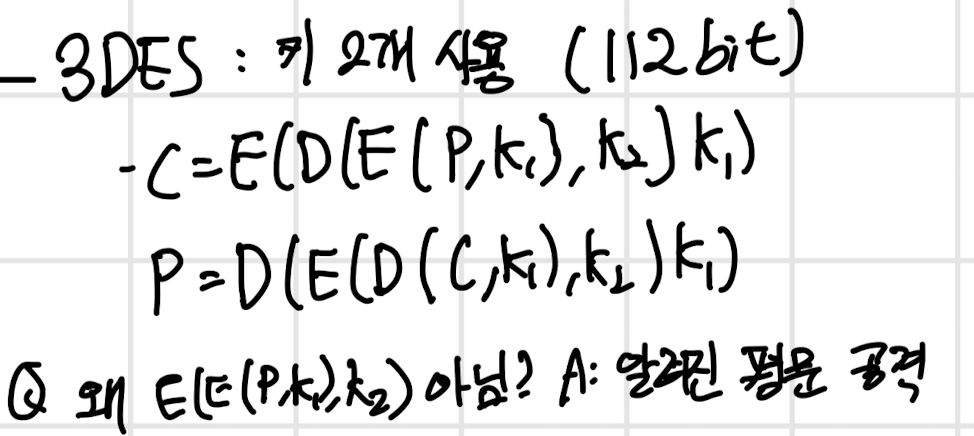 - 3DES : 키 2개 사용 (112bit)
- C=E(D(E(P,K₁),K₂)K₁)
P=D(E(D(C,K₁),K₂)K₁)
Q 왜 E(E(P,K₁),K₂) 아님? A: 알려진 평문 공격